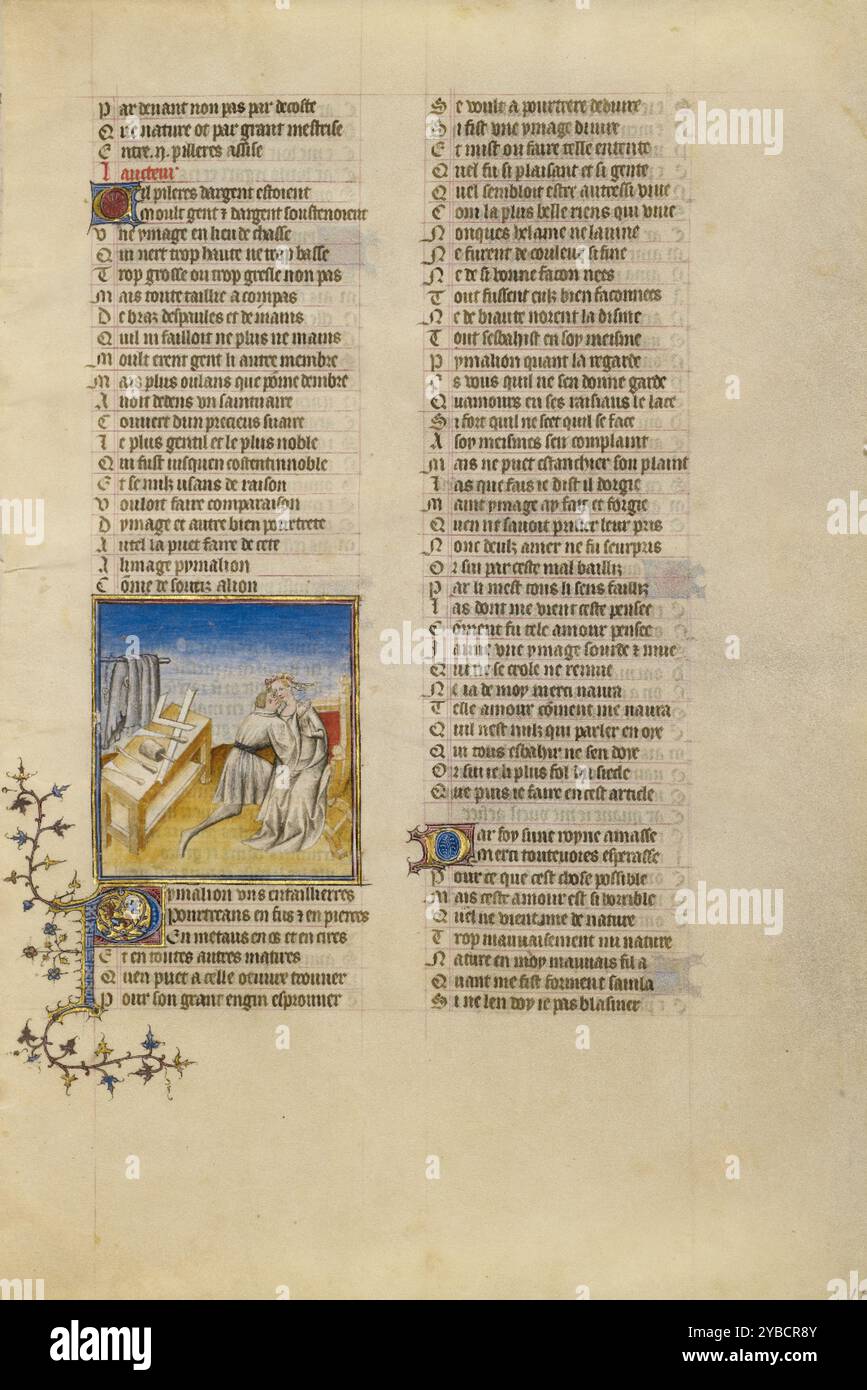 Par devant non pas par decoste
Que nature ot par grant mestrise
Entre .ij. pilleres assise
Laucteur
Cil pileres dargent estoient
Moult gent & dargent soustenoient
Vne ymage en lieu de chasse
Qui nert trop haute ne trop basse
Trop grosse ou trop gresle non pas
Mais toute taillie a compas
De braz despaules et de mains
Quil ni failloit ne plus ne mains
Moult erent gent li autre membre
Mais plus oulans que pōme dembre
Auoit dedens vn saintuaire
Couuert dun precieus suaire
Le plus gentil et le plus noble
Qui fust iusquen costentinnoble
Et se nulz usans de raison
Vouloit faire comparaison
Dymage et autre bien pourtrete
Autel la puet faire de cete
A limage pymalion
Cōme de souriz a lion
Pymalion vns entaillierres
Pourtreans en fus & en pierres
En metaus en os et en cires
Et en toutes autres matires
Quen puet a celle oeuure trouuer
Pour son grant engin esprouuer
Se voult a pourtrere deduire
Si fist vne ymage diuuire
Et mist ou faire telle entente
Quel fu si plaisant et si gente
Quel sembloit estre autressi viue
Com la plus belle riens qui viue
Nonques helaine ne lauine
Ne furent de couleur si fine
Ne de si bonne facon nees
Tout fussent eulz bien faconnees
Ne de biaute norent la disme
Tout sesbahist en soy meisme
Pymalion quant la regarde
Es vous quil ne sen donne garde
Quamours en ses raisiaus le lace
Si fort quil ne scet quil se face
A soy meismes sen complaint
Mais ne puet estanchier son plaint
Las que fais ie dist il dorgie
Maint ymage ay fait et forgie
Quen ne sauoit priser leur pris
Nonc deulz amer ne fu seurpris
Or sui par ceste mal bailliz
Par li mest tous li sens failliz
Las dont me vient ceste pensee
Cōment fu tele amour pensee
Jaime vne ymage sourde & mue
Qui ne se crole ne remue
Ne ia de moy merci naura
Telle amour cōment me naura
Quil nest nulz qui parler en oye
Qui tous esbahir ne sen doye
Or sui ie li plus fol du siecle
Que puis ie faire en cest article
Par foy sunt royne amasse
Merci toutevoies esperasse
Pour ce que cest chose possible
Mais ceste amour est si horrible
Quel ne vient mie de nature
Trop mauuaisement mi nature
Nature en moy mauuais fil a
Quant me fist forment sauila
Si ne len doy ie pas blasmer
alamy
Image ID: 2YBCR8Y
www.alamy.com